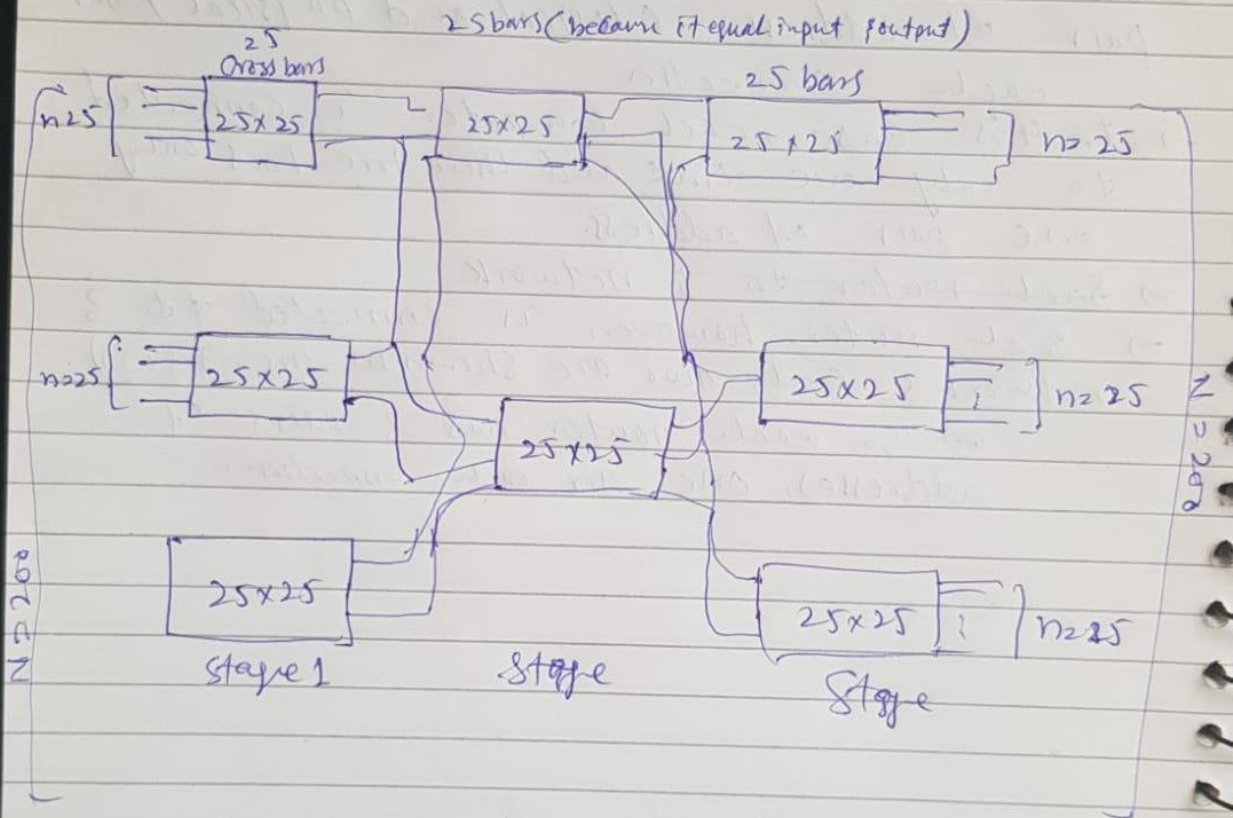 25 bars (because it equal input & output)
25
Cross bars
25 bars
n=25
25x25
25x25
25x25
n=25
n=25
25x25
25x25
n=25
25x25
N=200
N=200
25x25
25x25
n=25
Stage 1
Stage
Stage